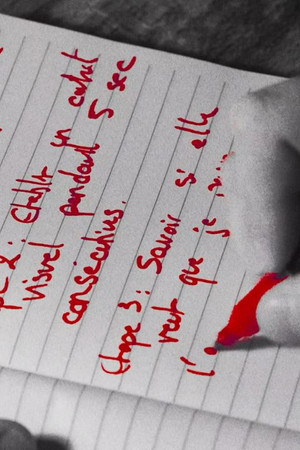 pe 2 : Etablir un contact
visuel pendant 5 sec
consécutives.
Etape 3 : Savoir si elle
veut que je